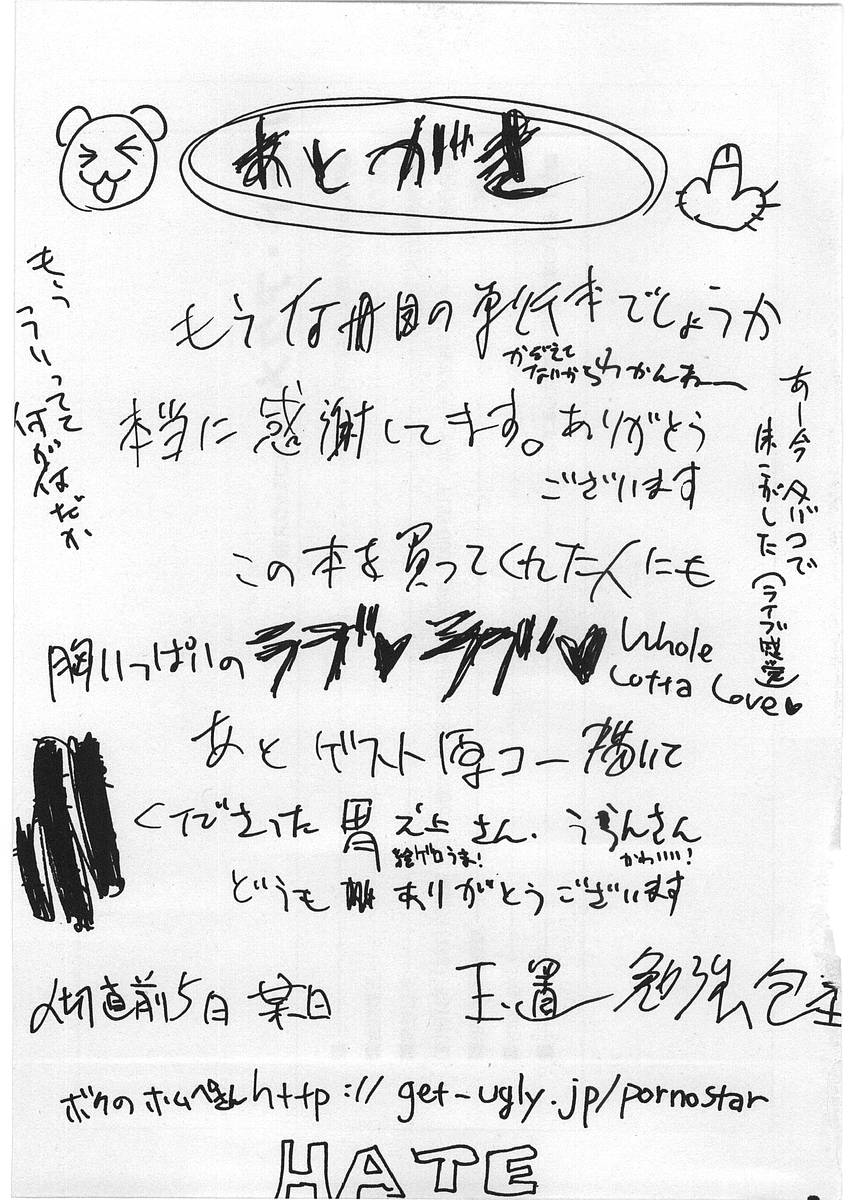 あとがき
もう何冊目の単行本でしょうか
かぞえて
ないからわかんねー
本当に感謝してます。ありがとう
ございます
この本を買ってくれた人にも
胸いっぱいのラブ♥ラブ♥ Whole
Lotta Love♥
あとゲスト原コー描いて
くださった胃之上さん.うらんさん
絵ゲロうま!
かわいい!
どうもありがとうございます
〆切直前5日 某日
玉置勉強
ボクのホムペさん http://get-ugly.jp/pornostar
HATE
もう
こういってて
何が何だか
あー今タバコで
床こがした(ライブ感覚)